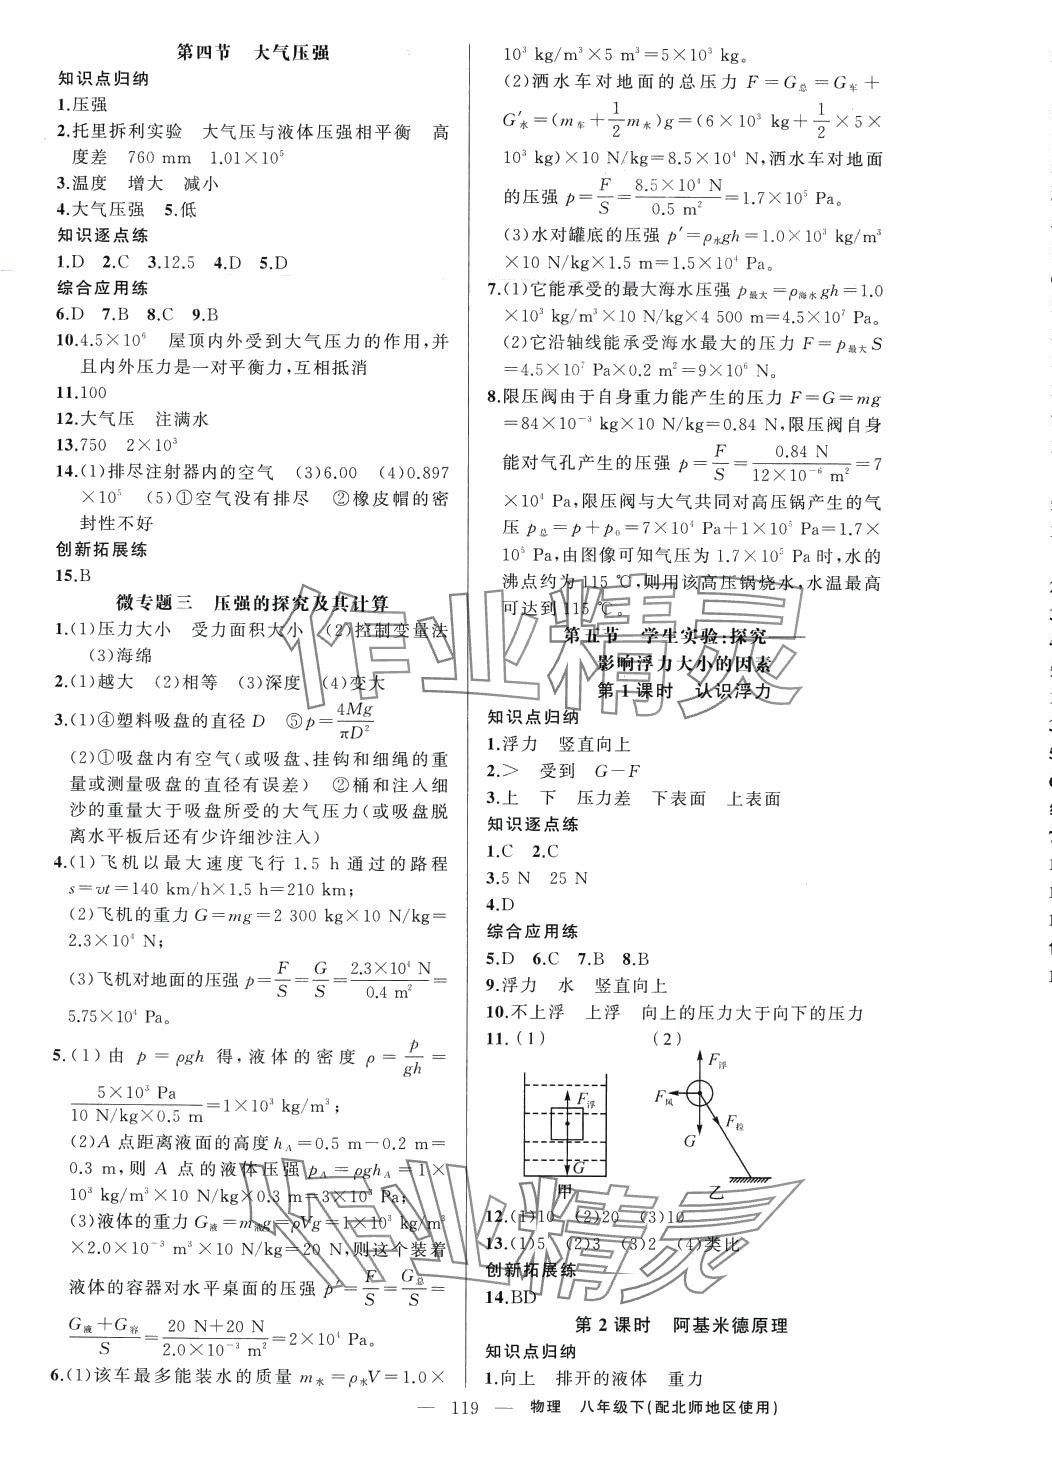 第四节　大气压强
知识点归纳
1.压强
2.托里拆利实验　大气压与液体压强相平衡　高
度差　760 mm　1.01×10⁵
3.温度　增大　减小
4.大气压强　5.低
知识逐点练
1.D　2.C　3.12.5　4.D　5.D
综合应用练
6.D　7.B　8.C　9.B
10.4.5×10⁶　屋顶内外受到大气压力的作用,并
且内外压力是一对平衡力,互相抵消
11.100
12.大气压　注满水
13.750　2×10³
14.(1)排尽注射器内的空气　(3)6.00　(4)0.897
×10⁵　(5)①空气没有排尽　②橡皮帽的密
封性不好
创新拓展练
15.B
微专题三　压强的探究及其计算
1.(1)压力大小　受力面积大小　(2)控制变量法
(3)海绵
2.(1)越大　(2)相等　(3)深度　(4)变大
3.(1)④塑料吸盘的直径 D　⑤p=4Mg/πD²
(2)①吸盘内有空气(或吸盘、挂钩和细绳的重
量或测量吸盘的直径有误差)　②桶和注入细
沙的重量大于吸盘所受的大气压力(或吸盘脱
离水平板后还有少许细沙注入)
4.(1)飞机以最大速度飞行 1.5 h 通过的路程
s=vt=140 km/h×1.5 h=210 km;
(2)飞机的重力 G=mg=2 300 kg×10 N/kg=
2.3×10⁴ N;
(3)飞机对地面的压强 p=F/S=G/S=2.3×10⁴ N/0.4 m²=
5.75×10⁴ Pa。
5.(1)由 p=ρgh 得,液体的密度 ρ=p/gh=
5×10³ Pa/10 N/kg×0.5 m=1×10³ kg/m³;
(2)A 点距离液面的高度 hA=0.5 m−0.2 m=
0.3 m,则 A 点的液体压强 pA=ρghA=1×
10³ kg/m³×10 N/kg×0.3 m=3×10³ Pa;
(3)液体的重力 G液=m液g=ρVg=1×10³ kg/m³
×2.0×10⁻³ m³×10 N/kg=20 N,则这个装着
液体的容器对水平桌面的压强 p′=F/S=G总/S=
G液+G容/S=20 N+20 N/2.0×10⁻³ m²=2×10⁴ Pa。
6.(1)该车最多能装水的质量 m水=ρ水V=1.0×
10³ kg/m³×5 m³=5×10³ kg。
(2)洒水车对地面的总压力 F=G总=G车+
G′水=(m车+1/2m水)g=(6×10³ kg+1/2×5×
10³ kg)×10 N/kg=8.5×10⁴ N,洒水车对地面
的压强 p=F/S=8.5×10⁴ N/0.5 m²=1.7×10⁵ Pa。
(3)水对罐底的压强 p′=ρ水gh=1.0×10³ kg/m³
×10 N/kg×1.5 m=1.5×10⁴ Pa。
7.(1)它能承受的最大海水压强 p最大=ρ海水gh=1.0
×10³ kg/m³×10 N/kg×4 500 m=4.5×10⁷ Pa。
(2)它沿轴线能承受海水最大的压力 F=p最大S
=4.5×10⁷ Pa×0.2 m²=9×10⁶ N。
8.限压阀由于自身重力能产生的压力 F=G=mg
=84×10⁻³ kg×10 N/kg=0.84 N,限压阀自身
能对气孔产生的压强 p=F/S=0.84 N/12×10⁻⁶ m²=7
×10⁴ Pa,限压阀与大气共同对高压锅产生的气
压 p总=p+p₀=7×10⁴ Pa+1×10⁵ Pa=1.7×
10⁵ Pa,由图像可知气压为 1.7×10⁵ Pa时,水的
沸点约为115 ℃,则用该高压锅烧水,水温最高
可达到115 ℃。
第五节　学生实验:探究——
影响浮力大小的因素
第1课时　认识浮力
知识点归纳
1.浮力　竖直向上
2.>　受到　G−F
3.上　下　压力差　下表面　上表面
知识逐点练
1.C　2.C
3.5 N　25 N
4.D
综合应用练
5.D　6.C　7.B　8.B
9.浮力　水　竖直向上
10.不上浮　上浮　向上的压力大于向下的压力
11.(1)　(2)
F浮
G
甲
F浮
F风
F拉
G
乙
12.(1)10　(2)20　(3)10
13.(1)5　(2)3　(3)2　(4)类比
创新拓展练
14.BD
第2课时　阿基米德原理
知识点归纳
1.向上　排开的液体　重力
— 119 —　物理　八年级下(配北师地区使用)
作业精灵
作业精灵